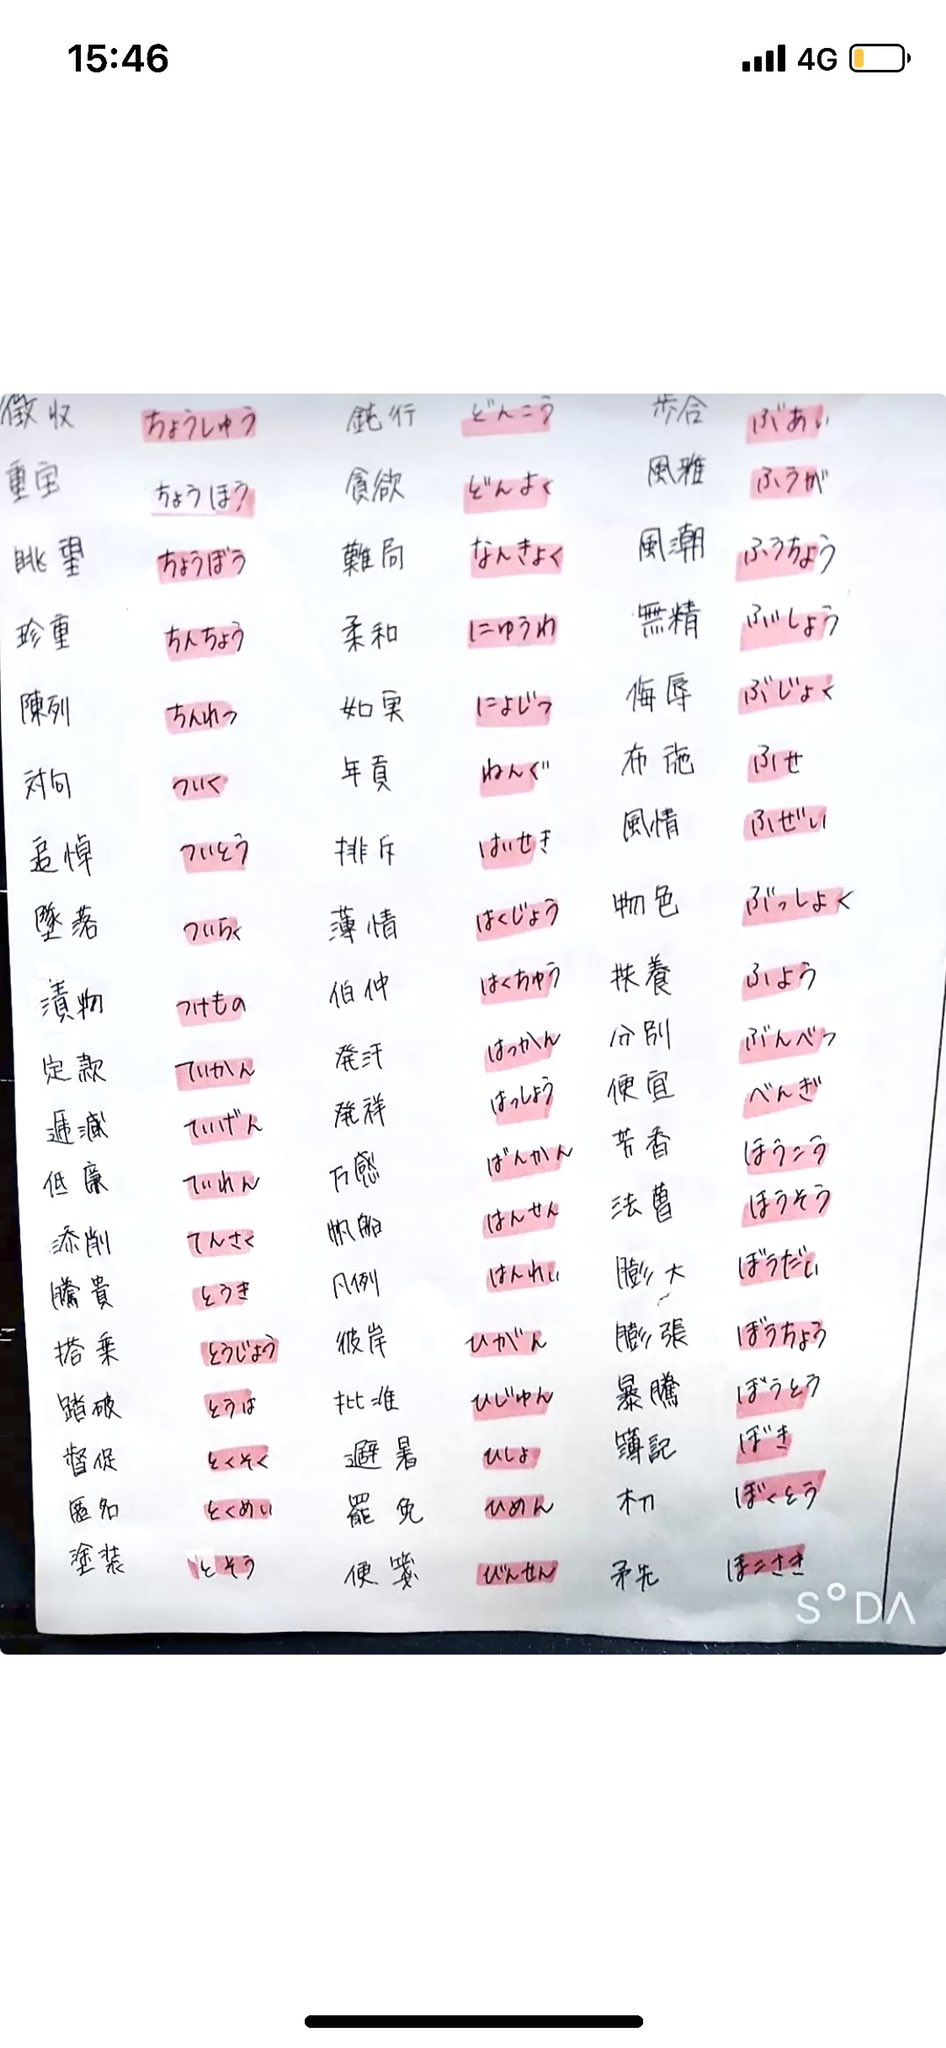 15:46 4G
徴収 ちょうしゅう 鈍行 どんこう 歩合 ぶあい
重宝 ちょうほう 貪欲 どんよく 風雅 ふうが
眺望 ちょうぼう 難局 なんきょく 風潮 ふうちょう
珍重 ちんちょう 柔和 にゅうわ 無精 ぶしょう
陳列 ちんれつ 如実 にょじつ 侮辱 ぶじょく
対句 ついく 年貢 ねんぐ 布施 ふせ
追悼 ついとう 排斥 はいせき 風情 ふぜい
墜落 ついらく 薄情 はくじょう 物色 ぶっしょく
漬物 つけもの 伯仲 はくちゅう 扶養 ふよう
定款 ていかん 発汗 はっかん 分別 ぶんべつ
逓減 ていげん 発祥 はっしょう 便宜 べんぎ
低廉 ていれん 万感 ばんかん 芳香 ほうこう
添削 てんさく 帆船 はんせん 法曹 ほうそう
騰貴 とうき 凡例 はんれい 膨大 ぼうだい
搭乗 とうじょう 彼岸 ひがん 膨張 ぼうちょう
踏破 とうは 批准 ひじゅん 暴騰 ぼうとう
督促 とくそく 避暑 ひしょ 簿記 ぼき
匿名 とくめい 罷免 ひめん 木刀 ぼくとう
塗装 とそう 便箋 びんせん 矛先 ほこさき
SODA